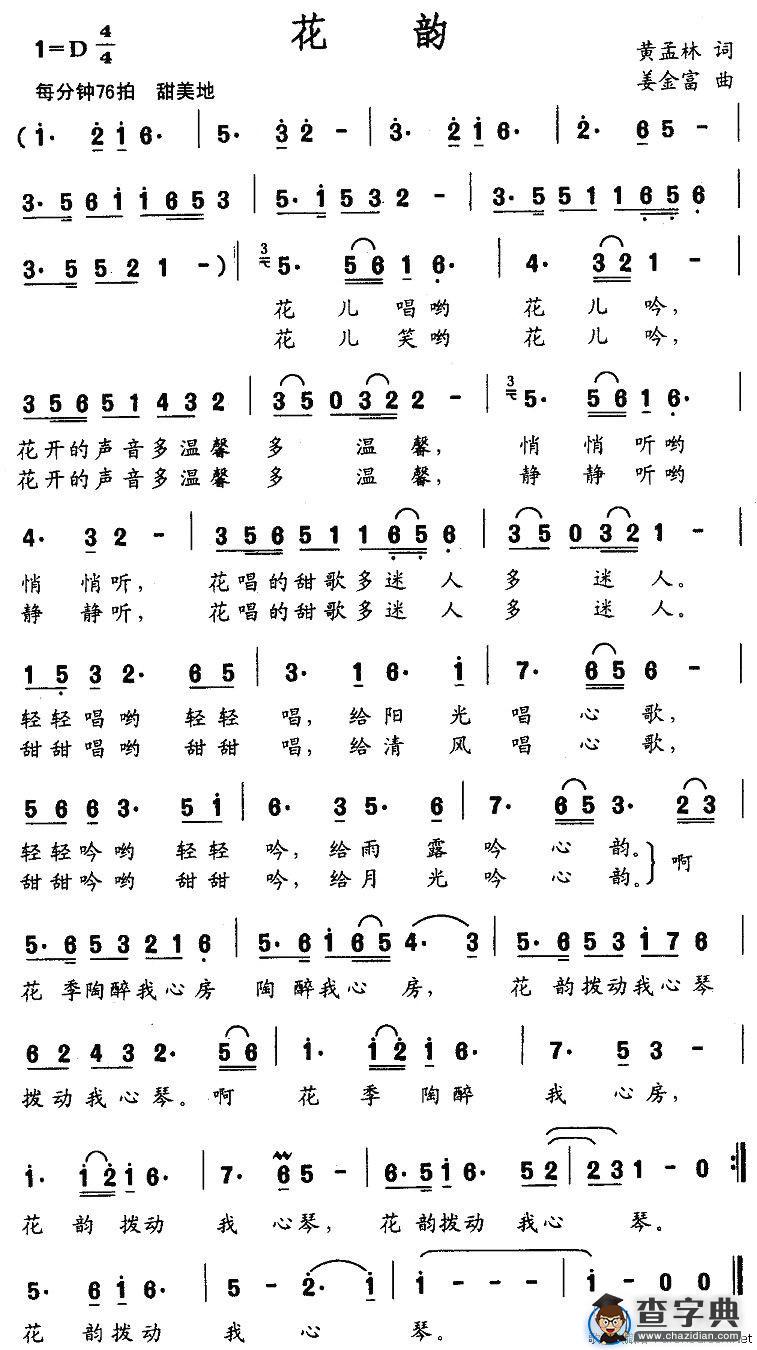 花 韵
1=D 4/4
黄孟林 词
每分钟76拍 甜美地
姜金富 曲
(1· 2 1 6· | 5· 3 2 - | 3· 2 1 6· | 2· 6 5 - |
3· 5 6 1 1 6 5 3 | 5· 1 5 3 2 - | 3· 5 5 1 1 6· 5· 6 |
3· 5 5 2 1 - ) | 3 5· 5 6 1 6· | 4· 3 2 1 - |
花 儿 唱哟 花 儿吟,
花 儿 笑哟 花 儿吟,
3 5 6 5 1 4 3 2 | 3 5 0 3 2 2 - | 3 5· 5 6 1 6· |
花开的声音多温馨 多 温 馨, 悄 悄听哟
花开的声音多温馨 多 温 馨, 静 静听哟
4· 3 2 - | 3 5 6 5 1 1 6· 5· 6 | 3 5 0 3 2 1 - |
悄 悄听, 花唱的甜歌多迷 人 多 迷 人。
静 静听, 花唱的甜歌多迷 人 多 迷 人。
1 5 3 2· 6 5 | 3· 1 6· 1 | 7· 6 5 6 - |
轻轻唱哟 轻轻 唱, 给阳 光 唱 心 歌,
甜甜唱哟 甜甜 唱, 给清 风 唱 心 歌,
5 6 6 3· 5 1 | 6· 3 5· 6 | 7· 6 5 3· 2 3 |
轻轻吟哟 轻轻 吟, 给雨 露 吟 心 韵。} 啊
甜甜吟哟 甜甜 吟, 给月 光 吟 心 韵。
5· 6 5 3 2 1 6 | 5· 6 1 6 5 4· 3 | 5· 6 5 3 1 7 6 |
花 季陶醉我心房 陶 醉我心 房, 花 韵拨动我心琴
6 2 4 3 2· 5 6 | 1· 1 2 1 6· | 7· 5 3 - |
拨动我心琴。啊 花 季 陶醉 我 心房,
1· 1 2 1 6· | 7· 6 5 - | 6· 5 1 6· 5 2 | 2 3 1 - 0 :‖
花 韵 拨动 我 心琴, 花 韵拨动 我心 琴。
5· 6 1 6· | 5 - 2· 1 | 1 - - - | 1 - 0 0 ‖
花 韵拨动 我 心 琴。
查字典
www.chazidian.com